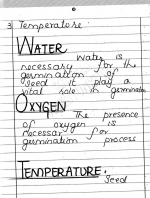 3 Temperature:
WATER
Water is
necessary for the
germination of
seed it play a
vital role in germination
OXYGEN
The presence
of oxygen is
necessary for
germination process
TEMPERATURE:
Seed